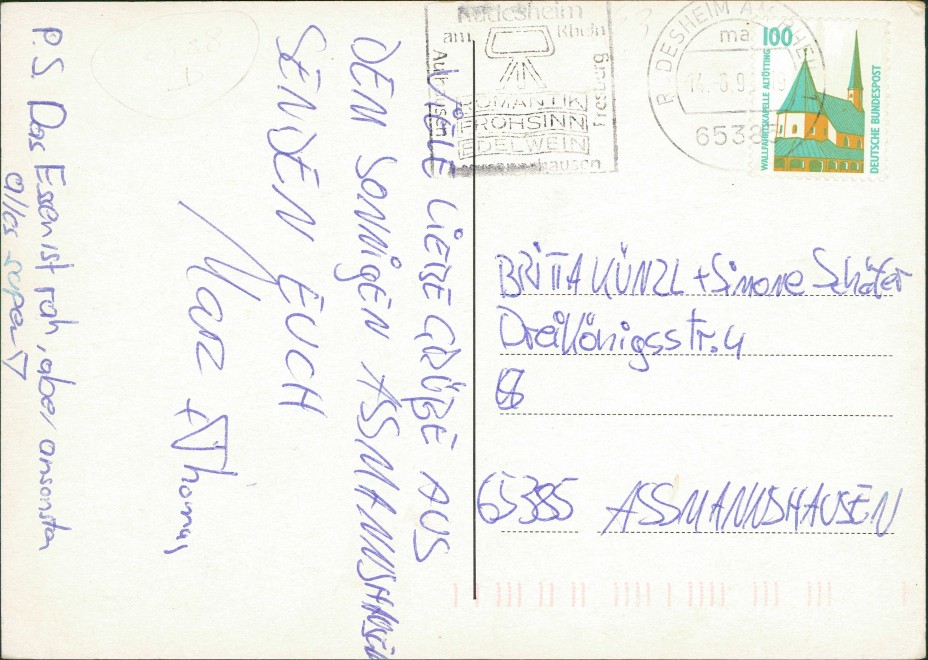 VIELE LIEBE GRÜßE AUS
DEM SONNIGEN ASSMANNSHAUSEN
SENDEN EUCH
Marc + Thomas
P.S. Das Essen ist roh, aber ansonsten
alles super
Rüdesheim
am Rhein
Aulhausen
Presberg
ROMANTIK
FROHSINN
EDELWEIN
hausen
RÜDESHEIM AM RHEIN
ma
6538
100
WALLFAHRTSKAPELLE ALTÖTTING
DEUTSCHE BUNDESPOST
BRITTA KÜNZL + Simone Schäfer
Dreikönigsstr. 4
65385 ASSMANNSHAUSEN